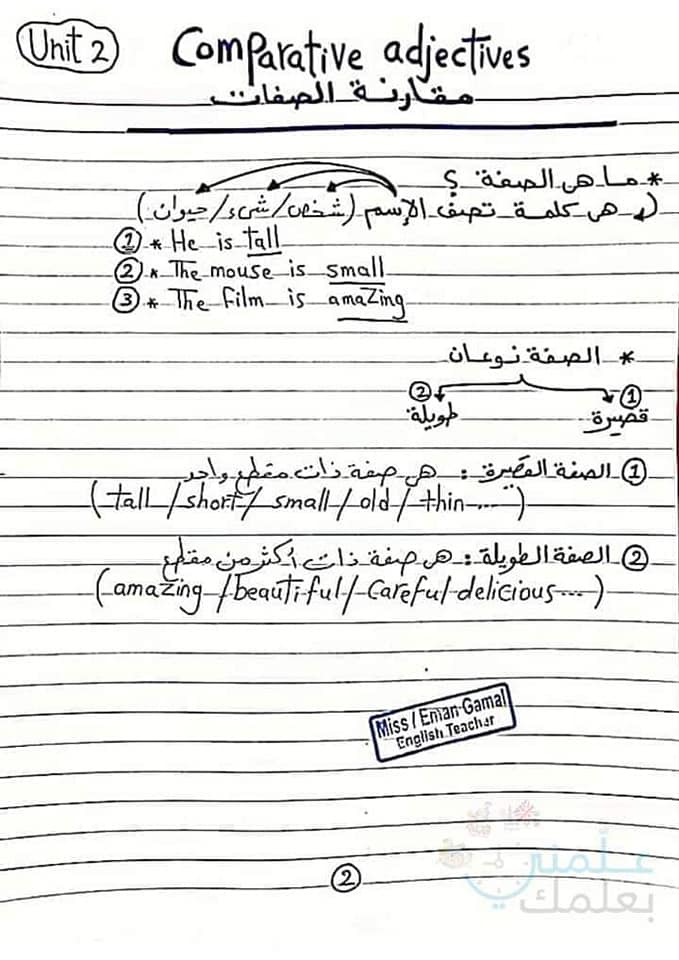 Unit 2
Comparative adjectives
مقارنة الصفات
* ما هى الصفة ؟
هى كلمة تصف الإسم (شخص/شىء/حيوان)
① * He is tall
② * The mouse is small
③ * The film is amazing
* الصفة نوعان
① قصيرة ② طويلة
① الصفة القصيرة : هى صفة ذات مقطع واحد
(tall / short / small / old / thin ....)
② الصفة الطويلة : هى صفة ذات أكثر من مقطع
(amazing / beautiful / careful delicious ....)
Miss / Eman Gamal
English Teacher
علّمني
بعلمك
②